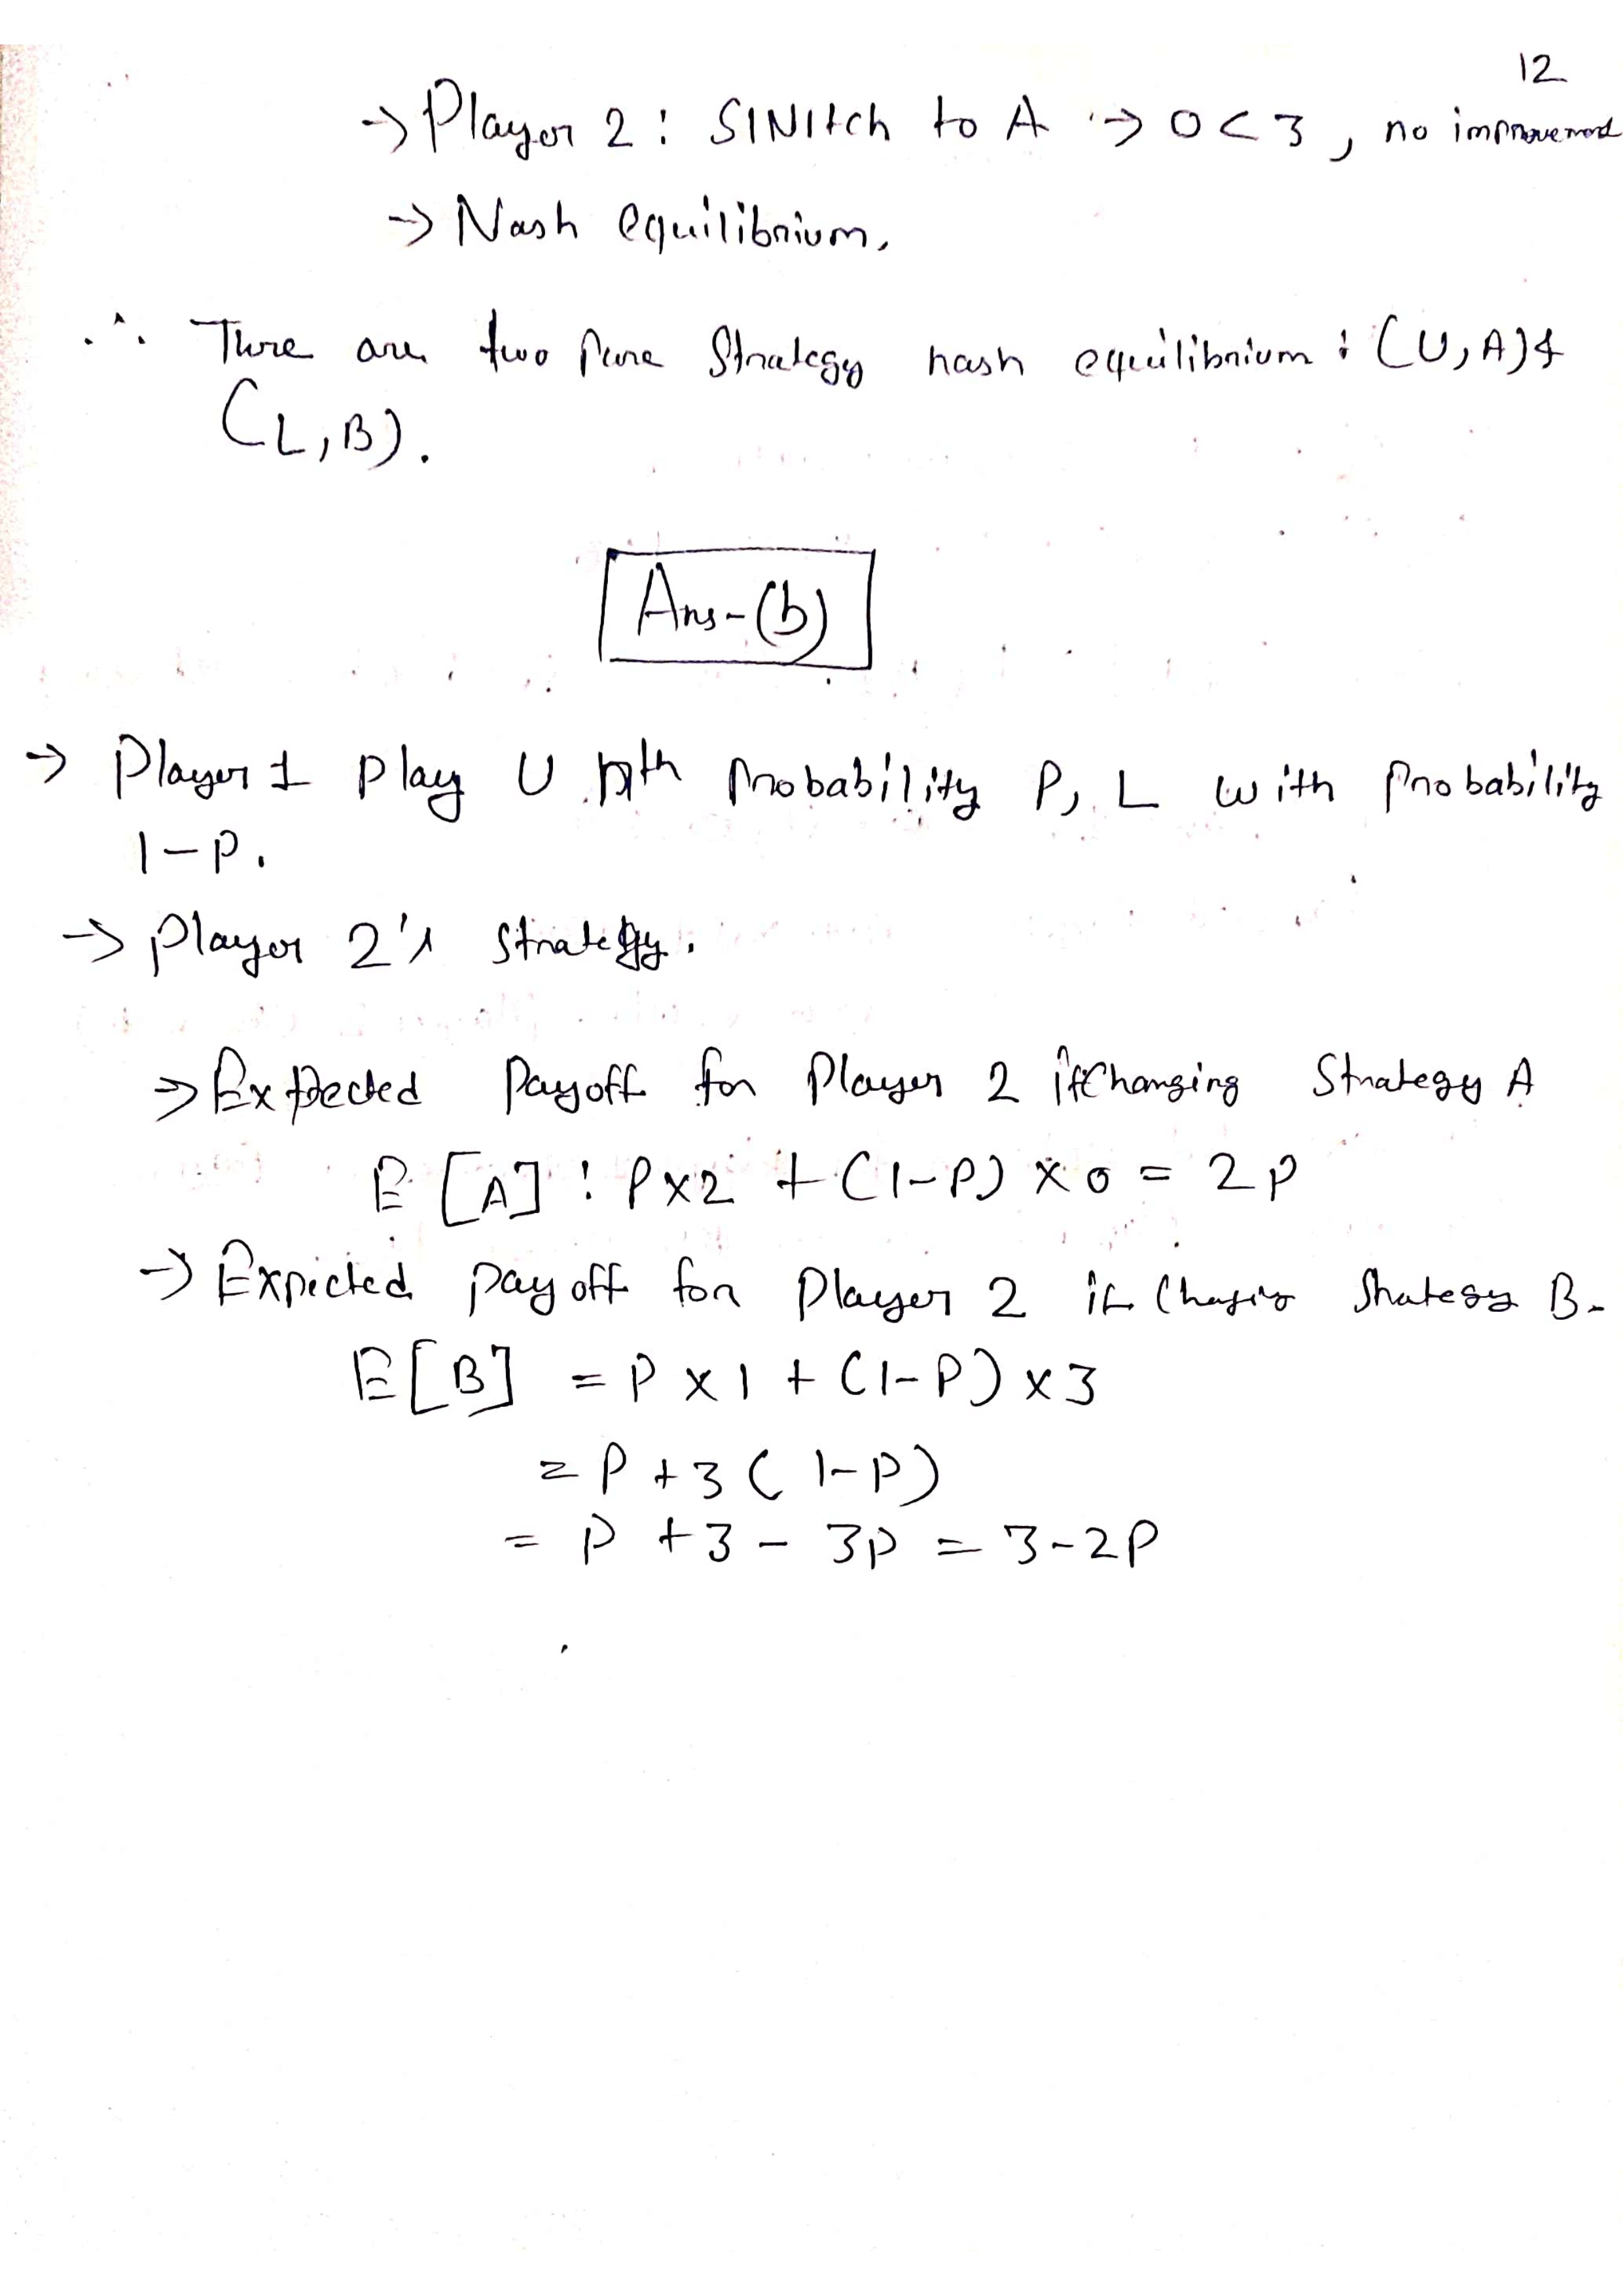 12
→ Player 2 : SINItch to A → 0 < 3 , no improvement
→ Nash equilibrium.
∴ There are two Pure Strategy nash equilibrium : (U, A) &
(L, B).
Ans-(b)
→ Player 1 Play U with Probability P, L with Probability
1-P.
→ Player 2's strategy.
→ Expected Payoff for Player 2 if Changing Strategy A
E [A] : P×2 + (1-P) × 0 = 2P
→ Expicted payoff for Player 2 if Strategy B.
E[B] = P × 1 + (1-P) × 3
= P + 3 ( 1-P)
= P + 3 - 3P = 3-2P